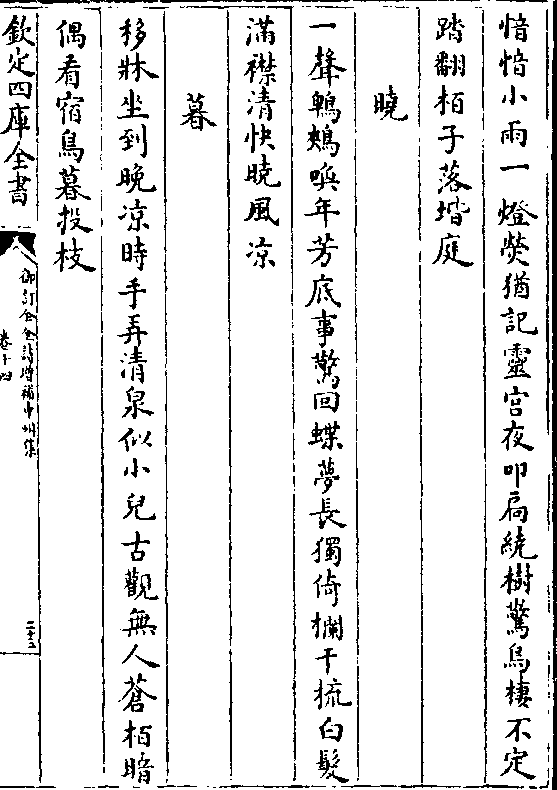 愔愔小雨一燈熒猶記靈宫夜叩扃繞樹驚烏棲不定
踏翻栢子落堦庭
曉
一聲鵯鵊喚年芳底事驚回蝶夢長獨倚欄干梳白髪
滿襟清快曉風凉
暮
移牀坐到晚凉時手弄清泉似小兒古觀無人蒼栢暗
偶看宿鳥暮投枝
欽定四庫全書
御訂全金詩增補中州集
卷十四
二十三